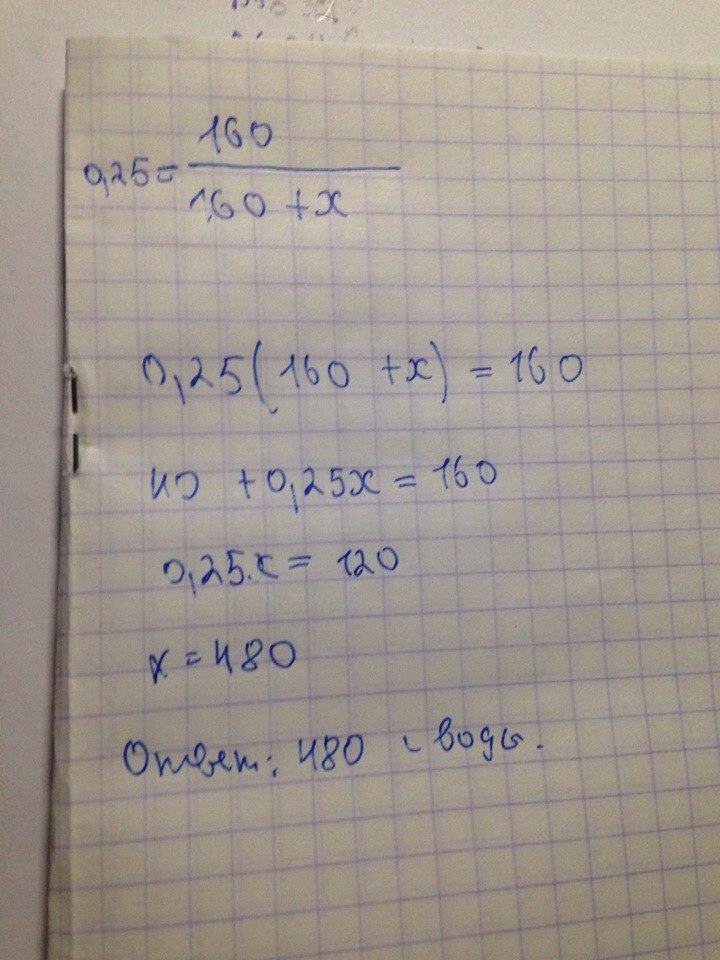 0,25 = 160 / 160 + x
0,25(160 + x) = 160
40 + 0,25x = 160
0,25x = 120
x = 480
Ответ: 480 г воды.